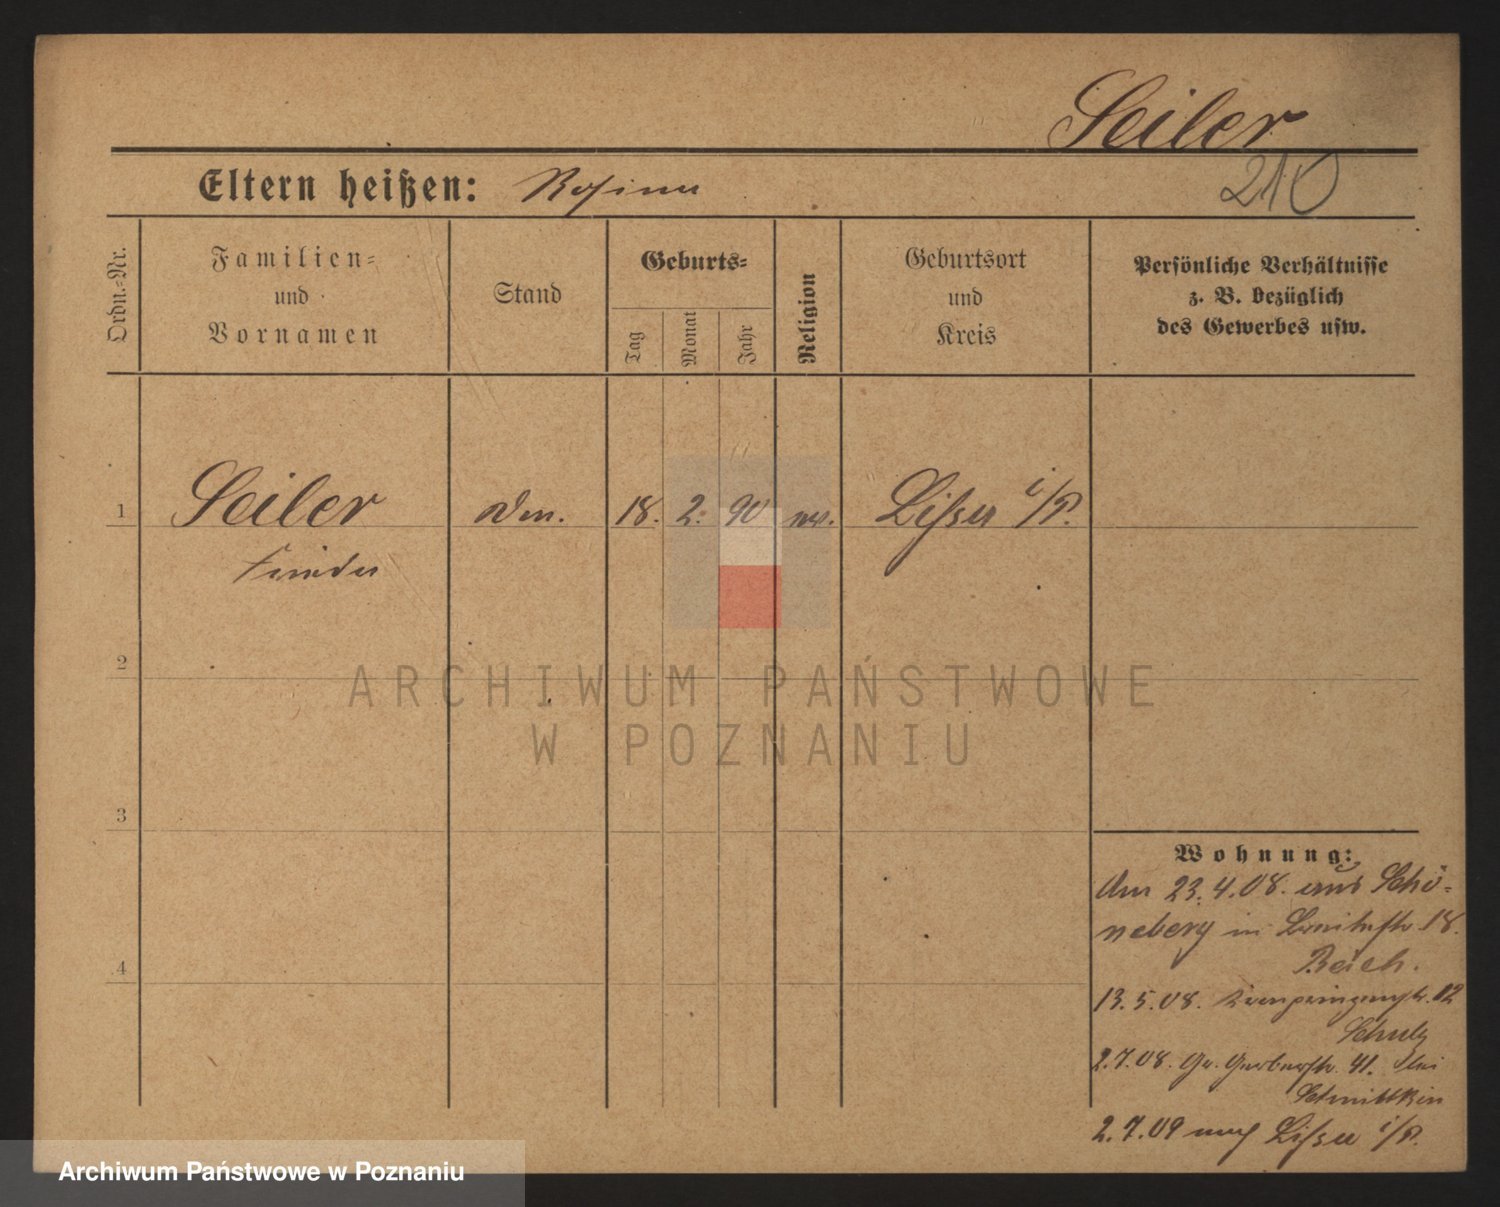 Seiler
210
Eltern heißen: Rosina
Ordn.-Nr.
Familien-
und
Vornamen
Stand
Geburts-
Tag
Monat
Jahr
Religion
Geburtsort
und
Kreis
Persönliche Verhältnisse
z. B. bezüglich
des Gewerbes usw.
1
Seiler
18. 2. 90
Lissa i/P.
2
3
4
ARCHIWUM PAŃSTWOWE
W POZNANIU
Wohnung:
Am 23.4.08. aus Schö-
neberg in 18.
Reich.
13.5.08. Kronprinzenstr. 12
Schulz
2.7.08. Gr. Gerberstr. 41. bei
2.7.09 nach Lissa i/P.
Archiwum Państwowe w Poznaniu